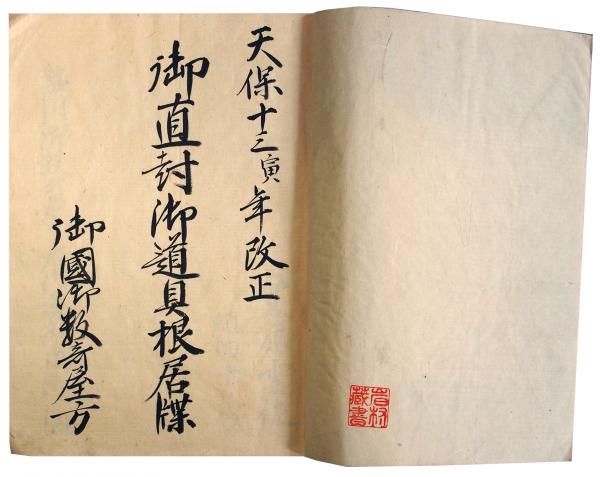 天保十三寅年改正
御直封御道具根居牒
御國御数寄屋方
岩村
藏書